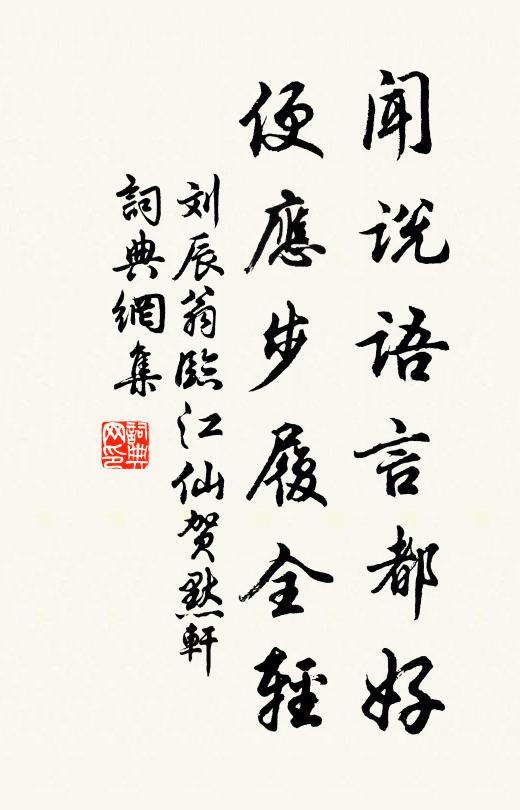 闻说语言都好
便應步履全輕
刘辰翁臨江仙贺默軒
詞典網集
詞典网印